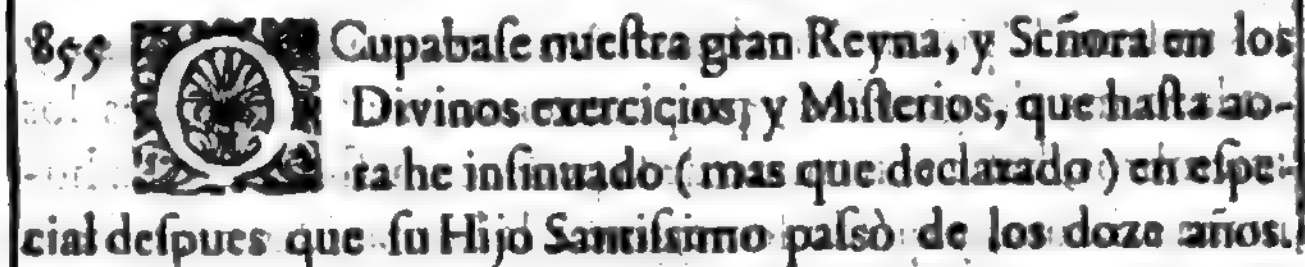 855 OCupabaſe nueſtra gran Reyna, y Señora en los
Divinos exercicios, y Miſterios, que haſta ao-
ra he inſinuado ( mas que declarado ) en eſpe-
cial deſpues que ſu Hijo Santiſsimo paſsò de los doze años.